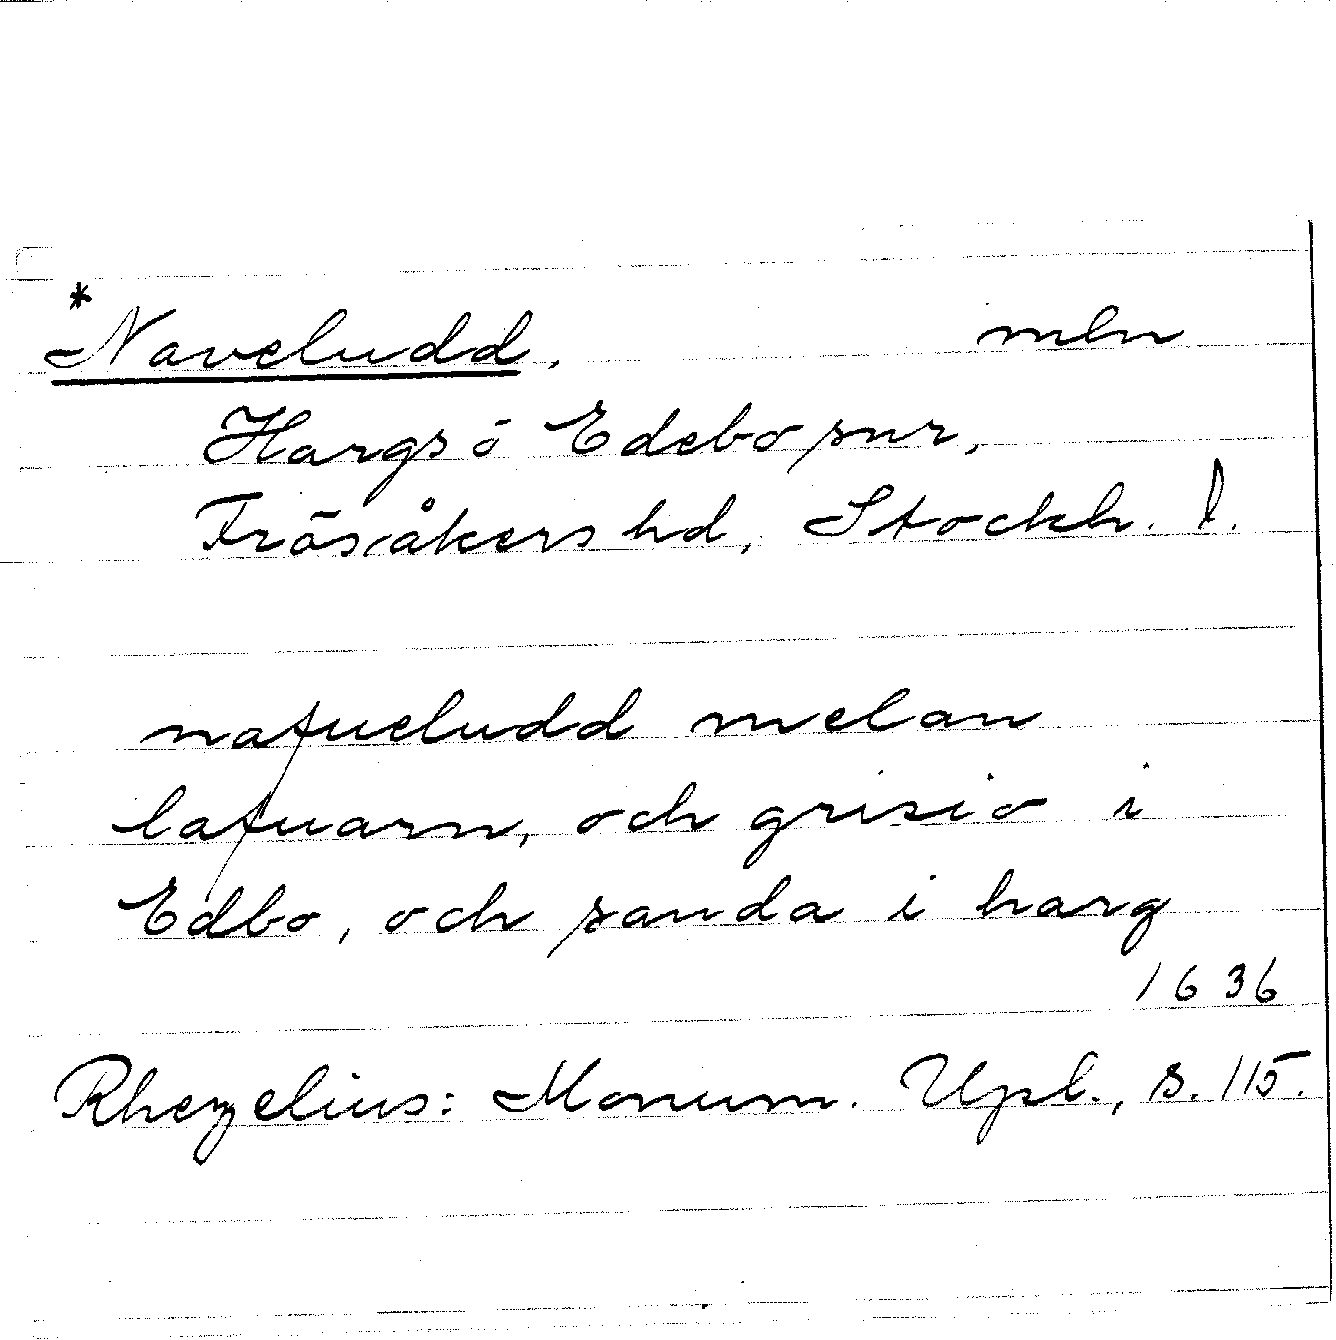 *Naveludd, mln
Hargs ö Edebo snr,
Frösåkers hd, Stockh. l.
nafueludd melan
lafuarn, och grisiö i
Edbo, och sanda i harg
1636
Rhezelius: Monum. Upl., s. 115.